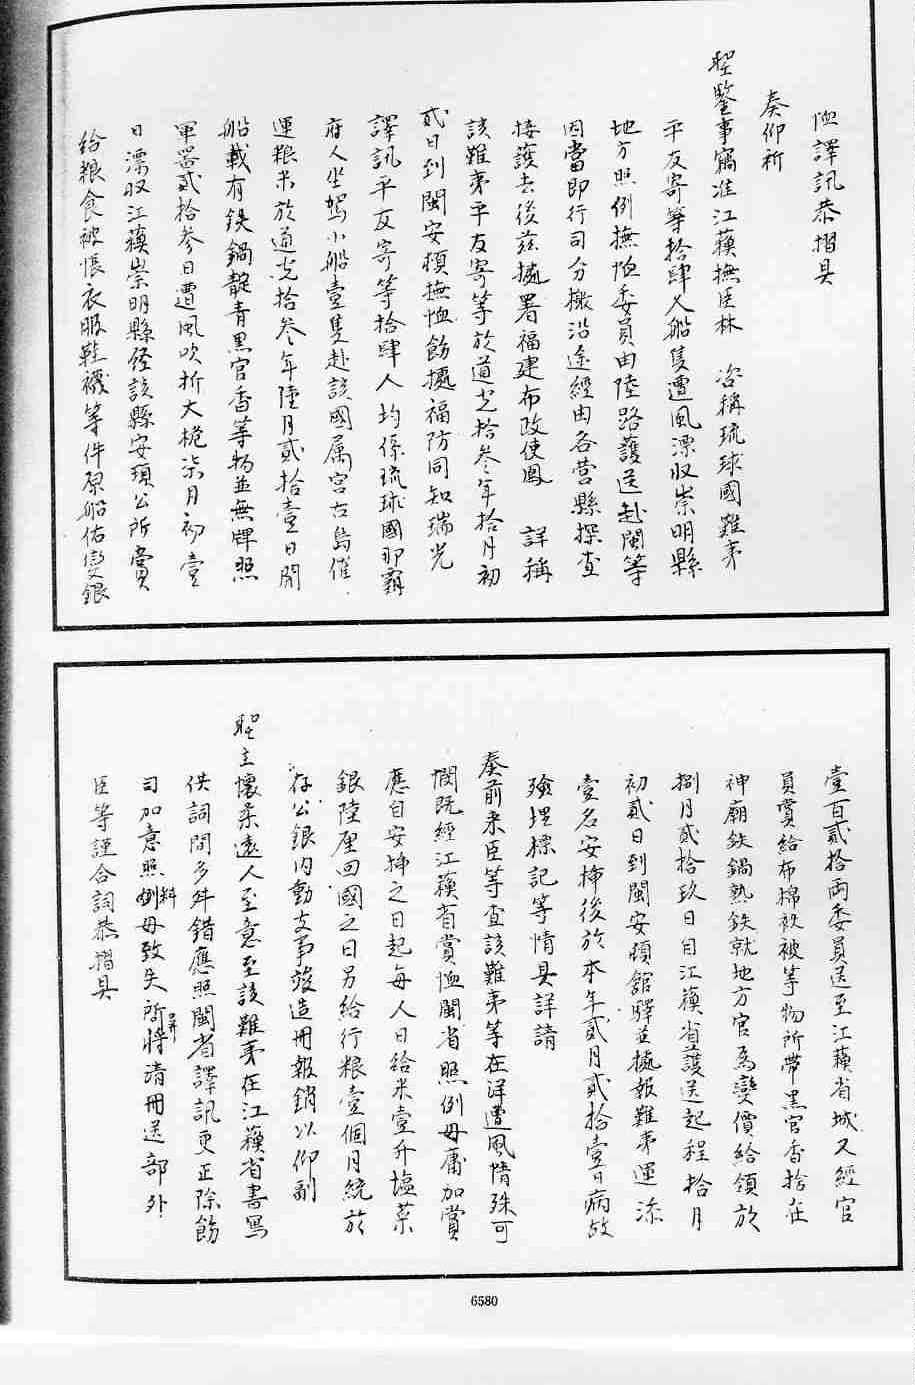 恤譯訊恭摺具
奏仰祈
聖鑒事竊准江蘓撫臣林 咨稱琉球國難夷
平友寄等拾肆人船隻遭風漂収崇明縣
地方照例撫恤委員由陸路護送赴閩等
因當即行司分檄沿途經由各营縣探查
接護去後兹㨿署福建布政使鳳 詳稱
該難夷平友寄等於道光拾叁年拾月初
貳日到閩安頓撫恤飭㨿福防同知瑞光
譯訊平友寄等拾肆人均係琉球國那霸
府人坐駕小船壹隻赴該國属宮古島催
運粮米於道光拾叁年陸月貳拾壹日開
船載有鉄鍋靛青黑官香等物並無牌照
軍器貳拾参日遭風吹折大桅柒月初壹
日漂収江蘓崇明縣経該縣安頓公所賞
給粮食被帳衣服鞋襪等件原船估变銀
壹百貳拾両委員送至江蘓省城又經官
員賞給布棉衣被等物所帶黑官香捨在
神廟鉄鍋熟鉄就地方官為變價給領於
捌月貳拾玖日自江蘓省護送起程拾月
初貳日到閩安頓館驛並㨿報難夷運添
壹名安揷後於本年貳月貳拾壹日病故
殮埋標記等情具詳請
奏前来臣等查該難夷等在洋遭風情殊可
憫既經江蘓省賞恤閩省照例毋庸加賞
應自安揷之日起每人日給米壹升塩菜
銀陸厘回國之日另給行粮壹個月統於
存公銀内動支事竣造冊報銷以仰副
聖主懷柔遠人至意至該難夷在江蘓省書寫
供詞間多舛錯應照閩省譯訊更正除飭
司加意照料毋致失所并將清冊送部外
臣等謹合詞恭摺具
6580